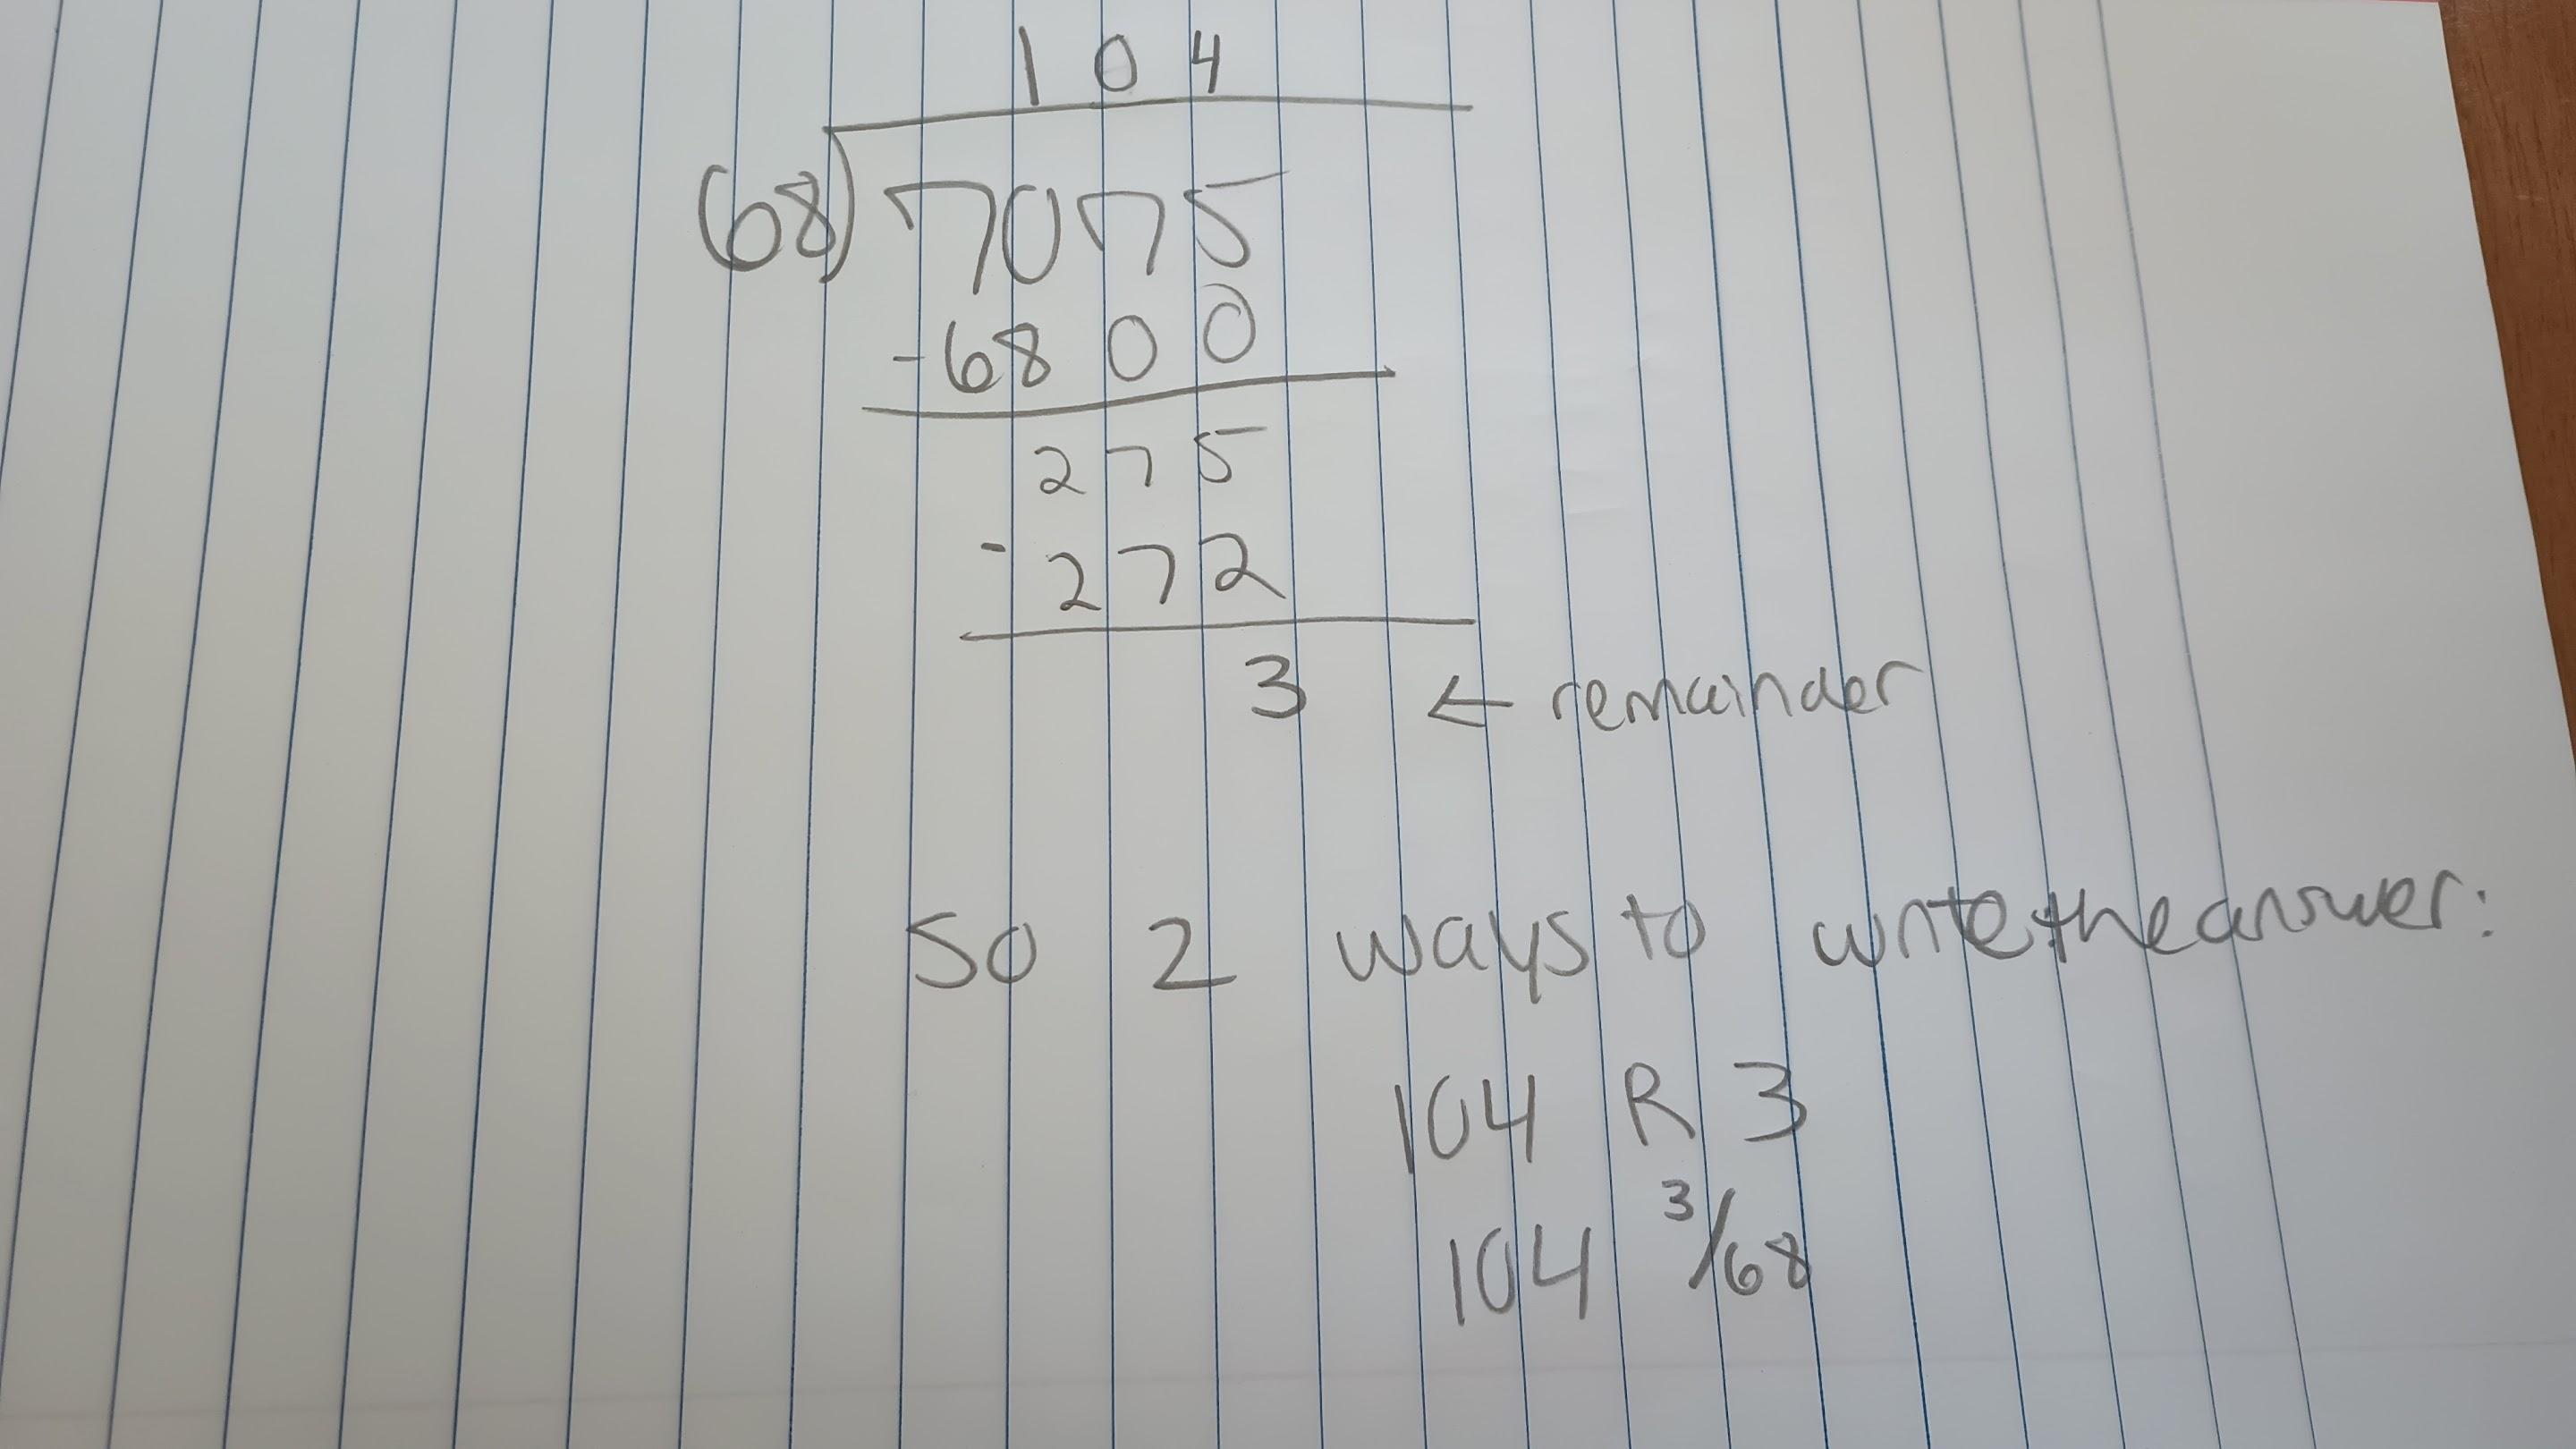 104
68)7075
-6800
275
-272
3 ← remainder
So 2 ways to write the answer:
104 R 3
104 3/68